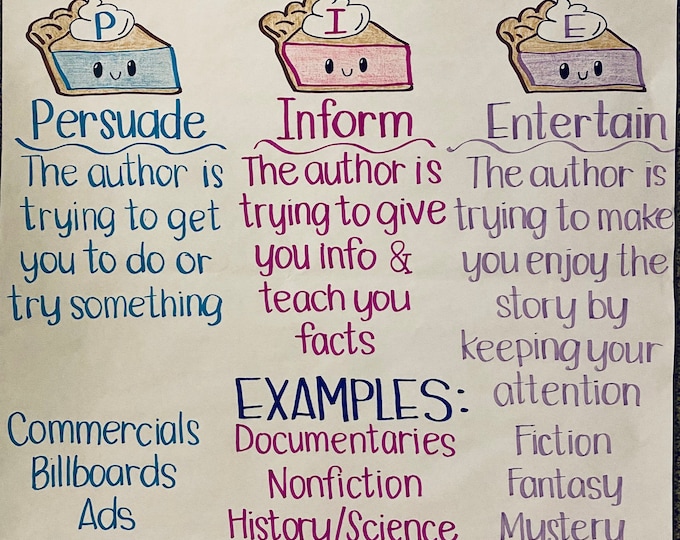 P
Persuade
The author is
trying to get
you to do or
try something
I
Inform
The author is
trying to give
you info &
teach you
facts
E
Entertain
The author is
trying to make
you enjoy the
story by
keeping your
attention
EXAMPLES:
Commercials
Billboards
Ads
Documentaries
Nonfiction
History/Science
Fiction
Fantasy
Mystery